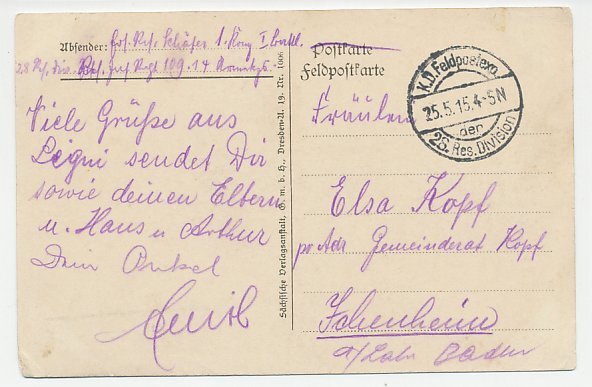 Absender:
1. Komp I
28. Res. Div. Res. Inf. Regt 109. 14
Viele Grüße aus
sendet Dir
sowie deinen Eltern
u. Hans u Arthur
Dein Onkel
Emil
Sächsische Verlagsanstalt, G. m. b. H., Dresden-A. 19. Nr. 1006.
Postkarte
Feldpostkarte
K.D. Feldpostexp.
25.5.15.4-5N
der
28. Res. Division
Fräulein
Elsa Kopf
pr Adr Gemeinderat Kopf
Ichenheim
a/Lahr Baden